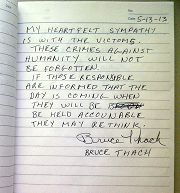 No.
Date 5-13-13
MY HEARTFELT SYMPATHY
IS WITH THE VICTIMS.
THESE CRIMES AGAINST
HUMANITY WILL NOT
BE FORGOTTEN.
IF THOSE RESPONSIBLE
ARE INFORMED THAT THE
DAY IS COMING WHEN
THEY WILL BE
BE HELD ACCOUNABLE
THEY MAY RETHINK.
Bruce Thach
BRUCE THACH